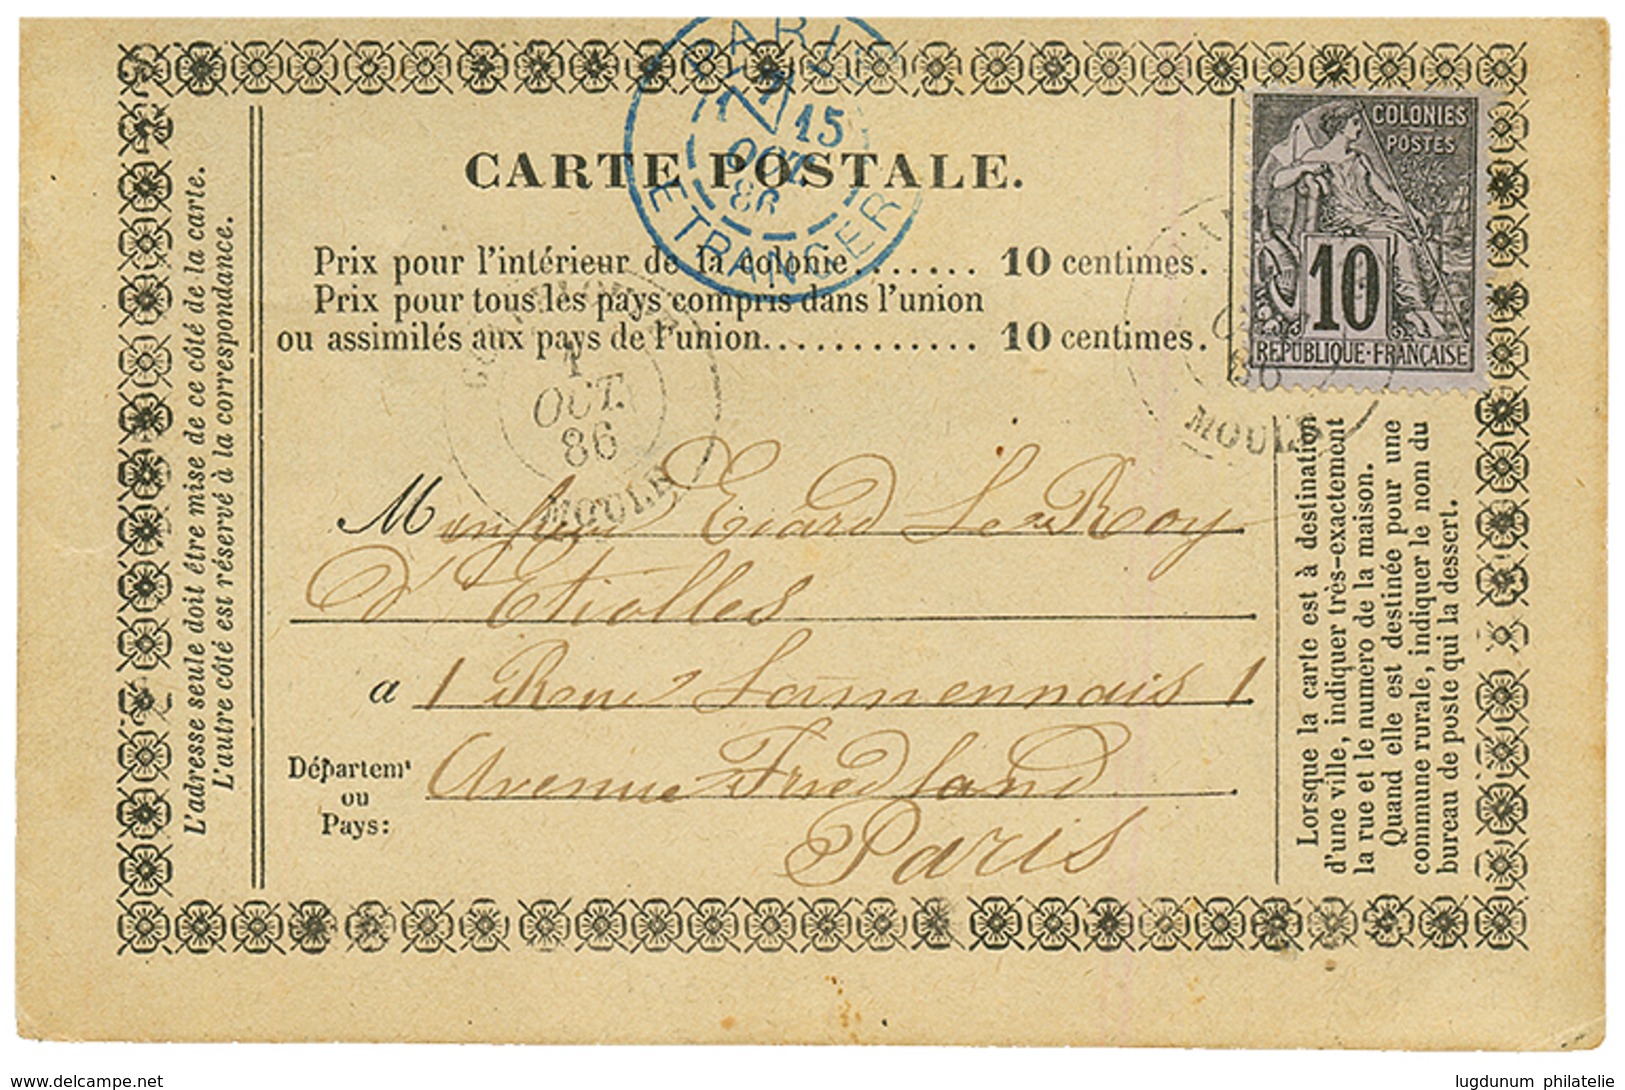 PARIS
15
OCT
86
ETRANGER
CARTE POSTALE.
COLONIES
POSTES
10
REPUBLIQUE-FRANÇAISE
Prix pour l'intérieur de la colonie....... 10 centimes.
Prix pour tous les pays compris dans l'union
ou assimilés aux pays de l'union............ 10 centimes.
1
OCT.
86
MOULE
86
MOULE
M Le Roy
d'Etiolles
a 1 Rue Lamennais 1
Départemt
ou
Pays:
Avenue Friedland
Paris
L'adresse seule doit être mise de ce côté de la carte.
L'autre côté est réservé à la correspondance.
Lorsque la carte est à destination
d'une ville, indiquer très-exactement
la rue et le numéro de la maison.
Quand elle est destinée pour une
commune rurale, indiquer le nom du
bureau de poste qui la dessert.
www.delcampe.net
lugdunum philatelie